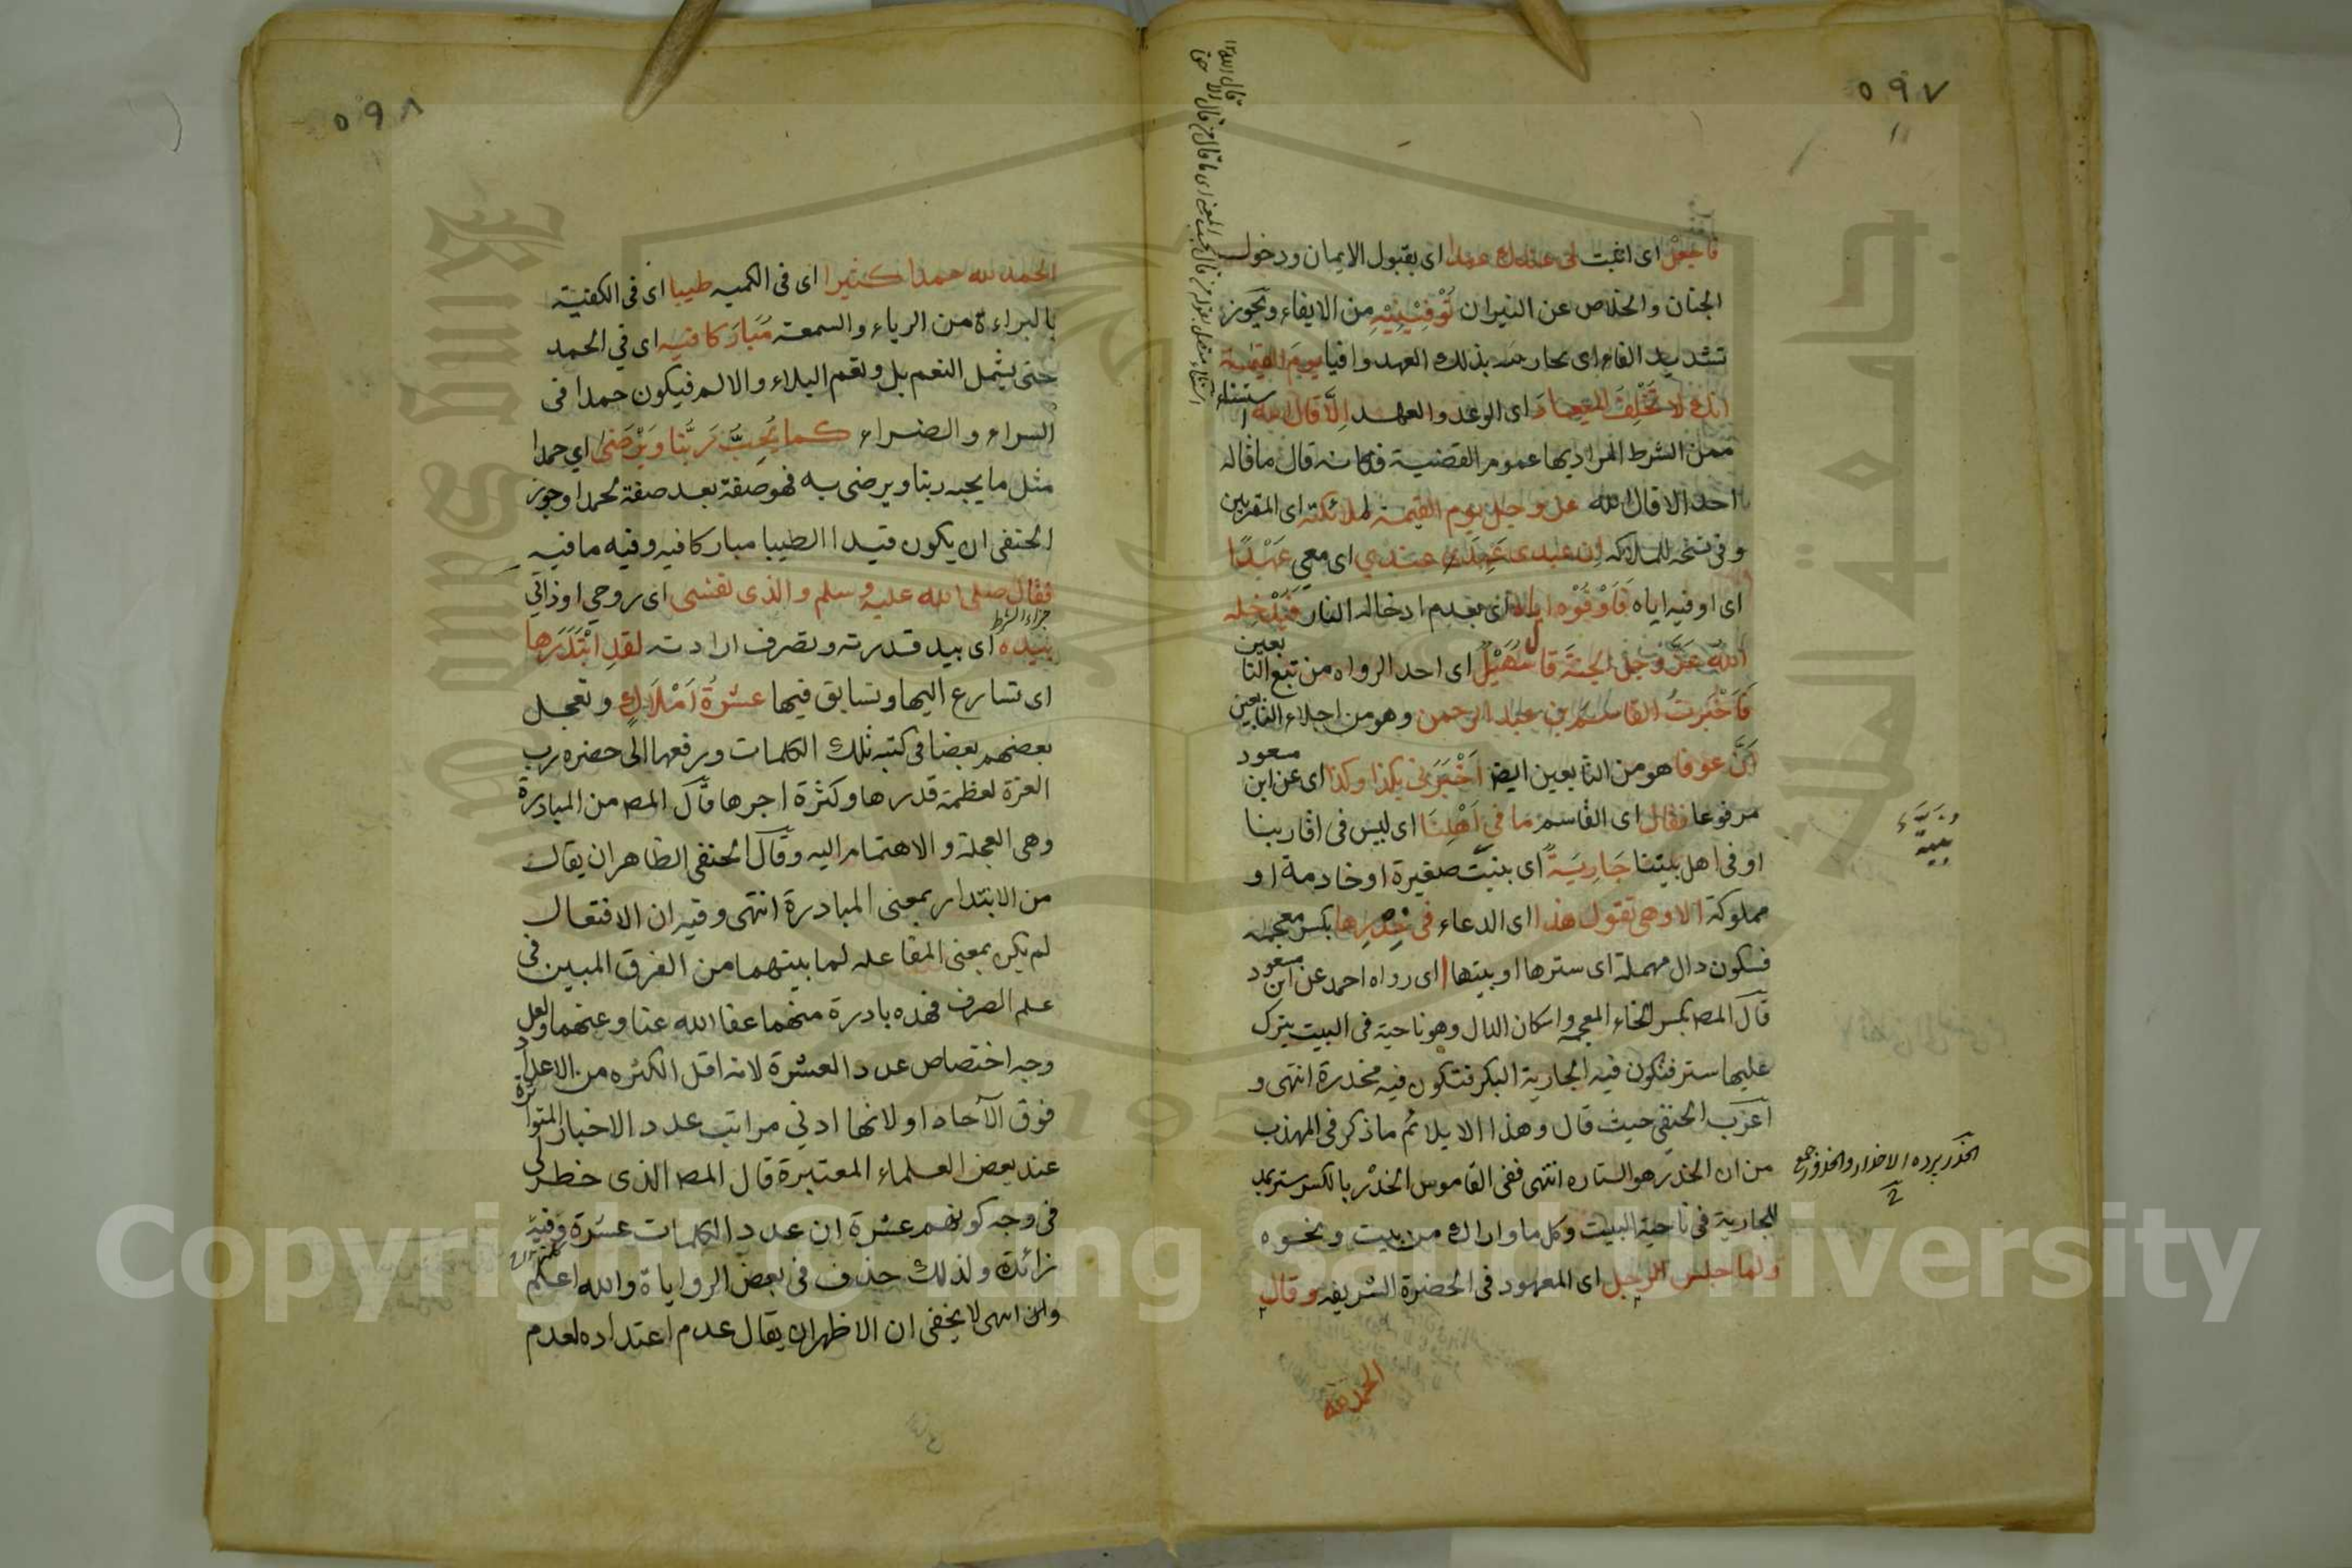 ٥٩٧
فاجعل اى اثبت لى عندك عهدا اى بقبول الايمان ودخول
الجنان والخلاص عن النيران تُوْفِيْنِيْهِ من الايفاء ويجوز
تشديد الفاء اى بذلك العهد وافيا يوم القيمة
انك لا تُخْلِفُ الميعاد اى الوعد والعهد اِلَّا قال الله استثناء
ممن الشرط المراد بها عموم القضية فكانه قال ما قاله
احد الا قال الله عز وجل يوم القيمة لملائكته اى المقربين
وفى نسخه للملائكه اِن عبدى عَهِدَ عندي اى معي عَهْدًا
اى اوفيه اياه فَاَوْفُوْه اياه اى بعدم ادخاله النار فَيُدْخله
اللهُ عَزَّ وجل الجنةَ قال سُهَيْلٌ اى احد الرواه من تبع التابعين
فَاَخْبَرتُ القاسم بن عبد الرحمن وهو من اجلاء التابعين
اَنَّ عوفا هو من التابعين ايضا اَخْبَرَنى بكذا وكذا اى عن ابن مسعود
مرفوعا فقال اى القاسم مَا في اَهْلِنَا اى ليس فى اقاربنا
او فى اهل بيتنا جَارِيَةٌ اى بنت صغيرة او خادمة او
مملوكة الا وهى تقول هذا اى الدعاء فى خِدْرِها بكسر معجمه
فسكون دال مهملة اى سترها او بيتها ا اى رواه احمد عن ابن مسعود
قَالَ المص بكسر الخاء المعجمه واسكان الدال وهو ناحية فى البيت يترك
عليها ستر فتكون فيه الجارية البكر فتكون فيه مخدرة انتهى و
اغرب الحنفى حيث قال وهذا الا يلائم ما ذكر فى المهذب
من ان الخدر هو الستاره انتهى ففى القاموس الخدْر بالكسر ستر يمد
للجارية فى ناحية البيت وكل ما واراك من بيت ونحوه
ولما جلس الرجل اى المعهود فى الحضرة الشريفه وقال
الحمد لله
٥٩٨
الحمد لله حمدا كثيرا اى فى الكميه طيبا اى فى الكفية
بالبراءة من الرياء والسمعة مُبَارَكا فيه اى في الحمد
حتى يشمل النعم بل ونعم البلاء والالم فيكون حمدا فى
السراء والضراء كما يُحِبُّ رَبُّنا وَيَرْضىٰ اي حمدا
مثل ما يحبه ربنا ويرضى به فهو صفة بعد صفة لحمدا وجوز
الحنفى ان يكون قيدا لطيبا مباركا فيه وفيه ما فيه
فقال صلى الله عليه وسلم والذى نفسى اى روحي او ذاتي
بيده اى بيد قدرته وتصرف ارادته لقدِ ابْتَدَرَها جزاء الشرط
اى تسارع اليها وتسابق فيها عشرةُ اَمْلَاكٍ وتعجل
بعضهم بعضا فى كتبه تلك الكلمات ورفعها الى حضره رب
العزة لعظمة قدرها وكثرة اجرها قَالَ المص من المبادرة
وهى العجلة والاهتمام اليه وقَالَ الحنفى الظاهر ان يقال
من الابتدار بمعنى المبادرة انتهى وفيه ان الافتعال
لم يكن بمعنى المفاعله لما بينهما من الفرق المبين فى
علم الصرف فهذه بادرة منهما عفا الله عنا وعنهما ولعل
وجه اختصاص عدد العشرة لانه اقل الكثره من الاعداد
فوق الآحاد او لانها ادنى مراتب عدد الاخبار المتواترة
عند بعض العلماء المعتبرة قال المص الذى خطر لى
فى وجه كونهم عشرة ان عدد الكلمات عشرة وفيه
زائدة ولذلك حذف فى بعض الرواياة والله اعلم
وان انتهى لا يخفى ان الاظهران يقال عدم اعتداده لعدم
Copyright © King Saud University
جامعة الملك سعود
King Saud University